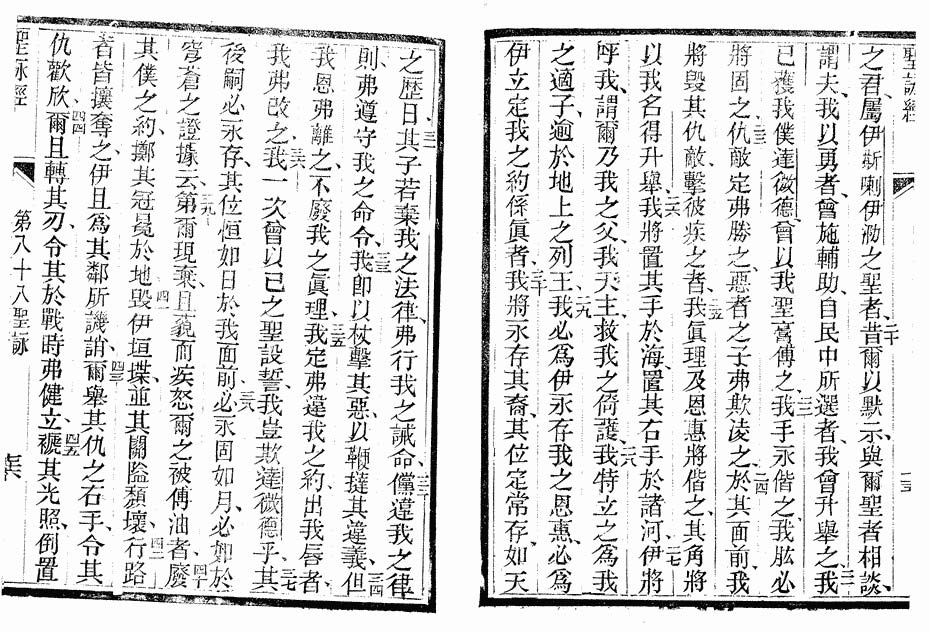 聖詠經
之君屬伊斯喇伊泐之聖者昔爾以默示與爾聖者相談
謂夫我以勇者曾施輔助自民中所選者我曾升舉之我
已獲我僕達微德曾以我聖膏傅之我手永偕之我肱必
將固之仇敵定弗勝之惡者之子弗欺凌之於其面前我
將毀其仇敵擊彼疾之者我眞理及恩惠將偕之其角將
以我名得升舉我將置其手於海置其右手於諸河伊將
呼我謂爾乃我之父我天主救我之倚護我特立之為我
之適子逾於地上之列王我必為伊永存我之恩惠必為
伊立定我之約係眞者我將永存其裔其位定常存如天
之歷日其子若棄我之法律弗行我之誡命儻違我之律
則弗遵守我之命令我卽以杖擊其惡以鞭撻其違義但
我恩弗離之不廢我之眞理我定弗違我之約出我唇者
我弗改之我一次曾以己之聖設誓我豈欺達微德乎其
後嗣必永存其位恒如日於我面前必永固如月必如於
穹蒼之證據云第爾現棄且藐而疾怒爾之被傅油者廢
其僕之約擲其冠冕於地毀伊垣堞並其關隘頹壞行路
者皆攘奪之伊且爲其鄰所譏誚爾舉其仇之右手令其
仇歡欣爾且轉其刃令其於戰時弗健立褫其光照倒置
聖詠經
第八十八聖詠